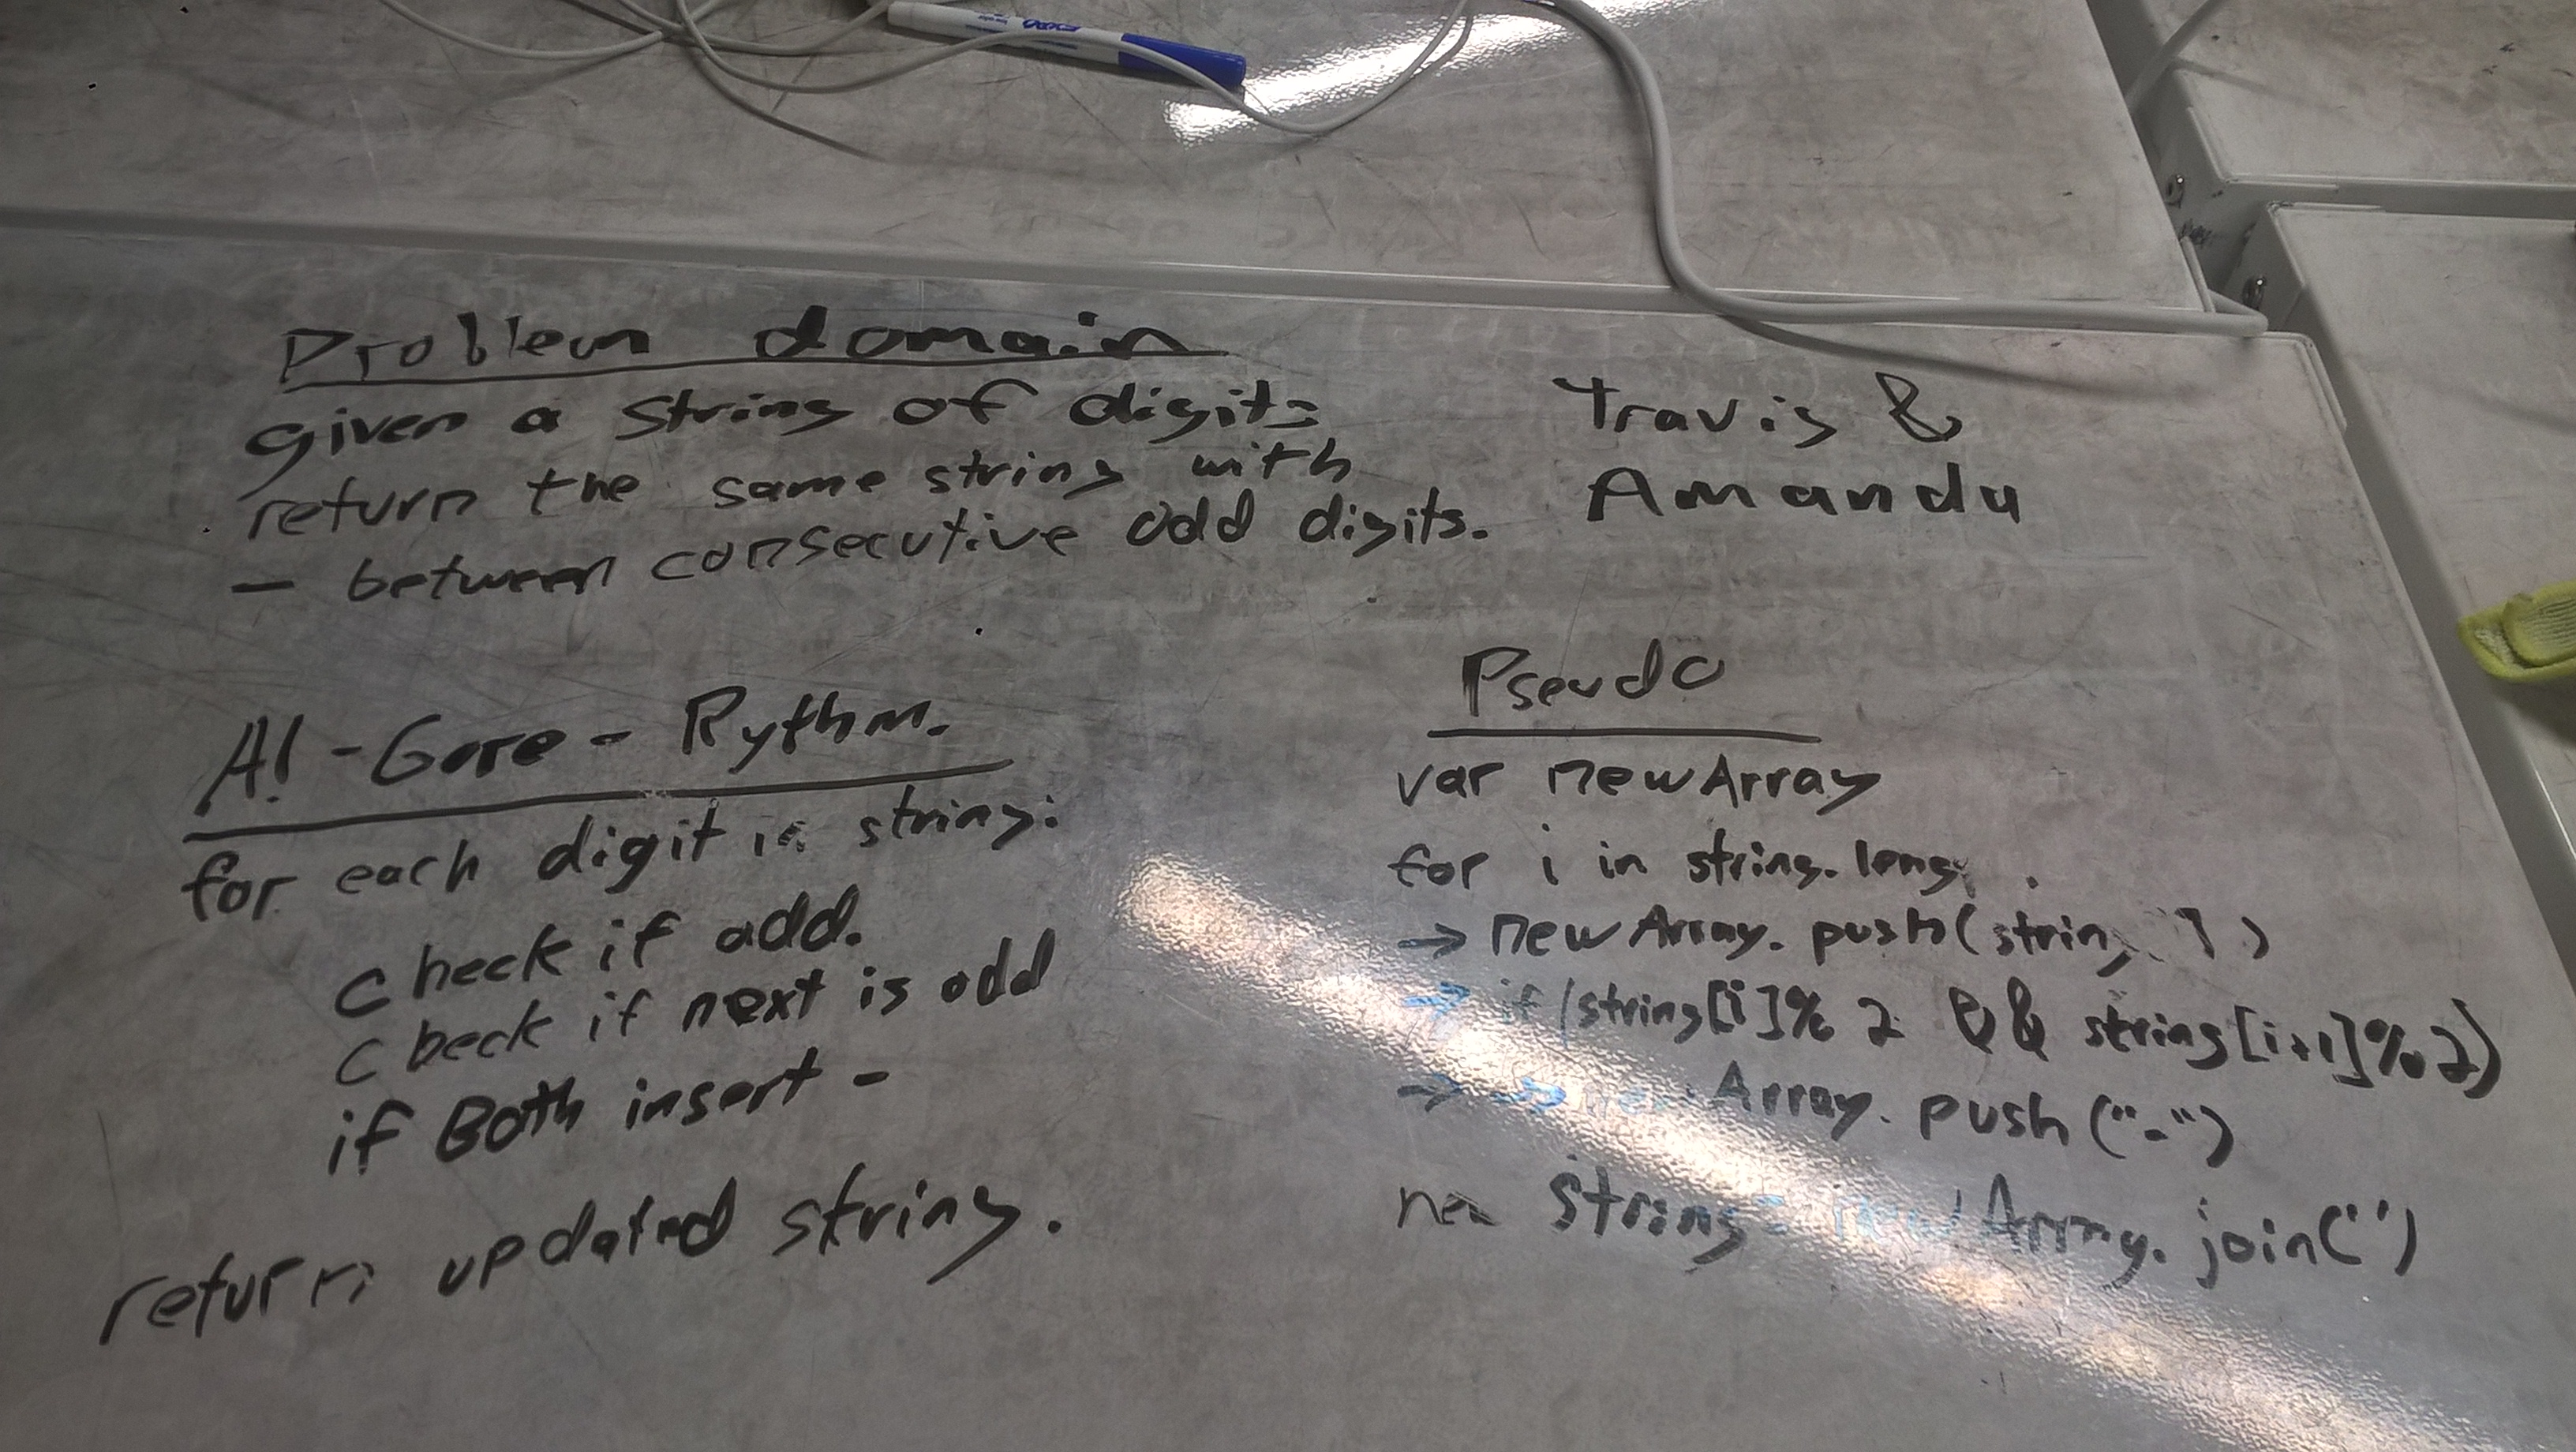 EXPO
Problem domain
given a string of digits
return the same string with
- between consecutive odd digits.
Travis &
Amanda
Al-Gore-Rythm.
for each digit in string:
check if odd.
check if next is odd
if Both insert -
return updated string.
Pseudo
var newArray
for i in string.
→ newArray. push(
→ if (string[i]%2 && string[i+1]%2)
→ → newArray. push("-")
new string = newArray. join('')